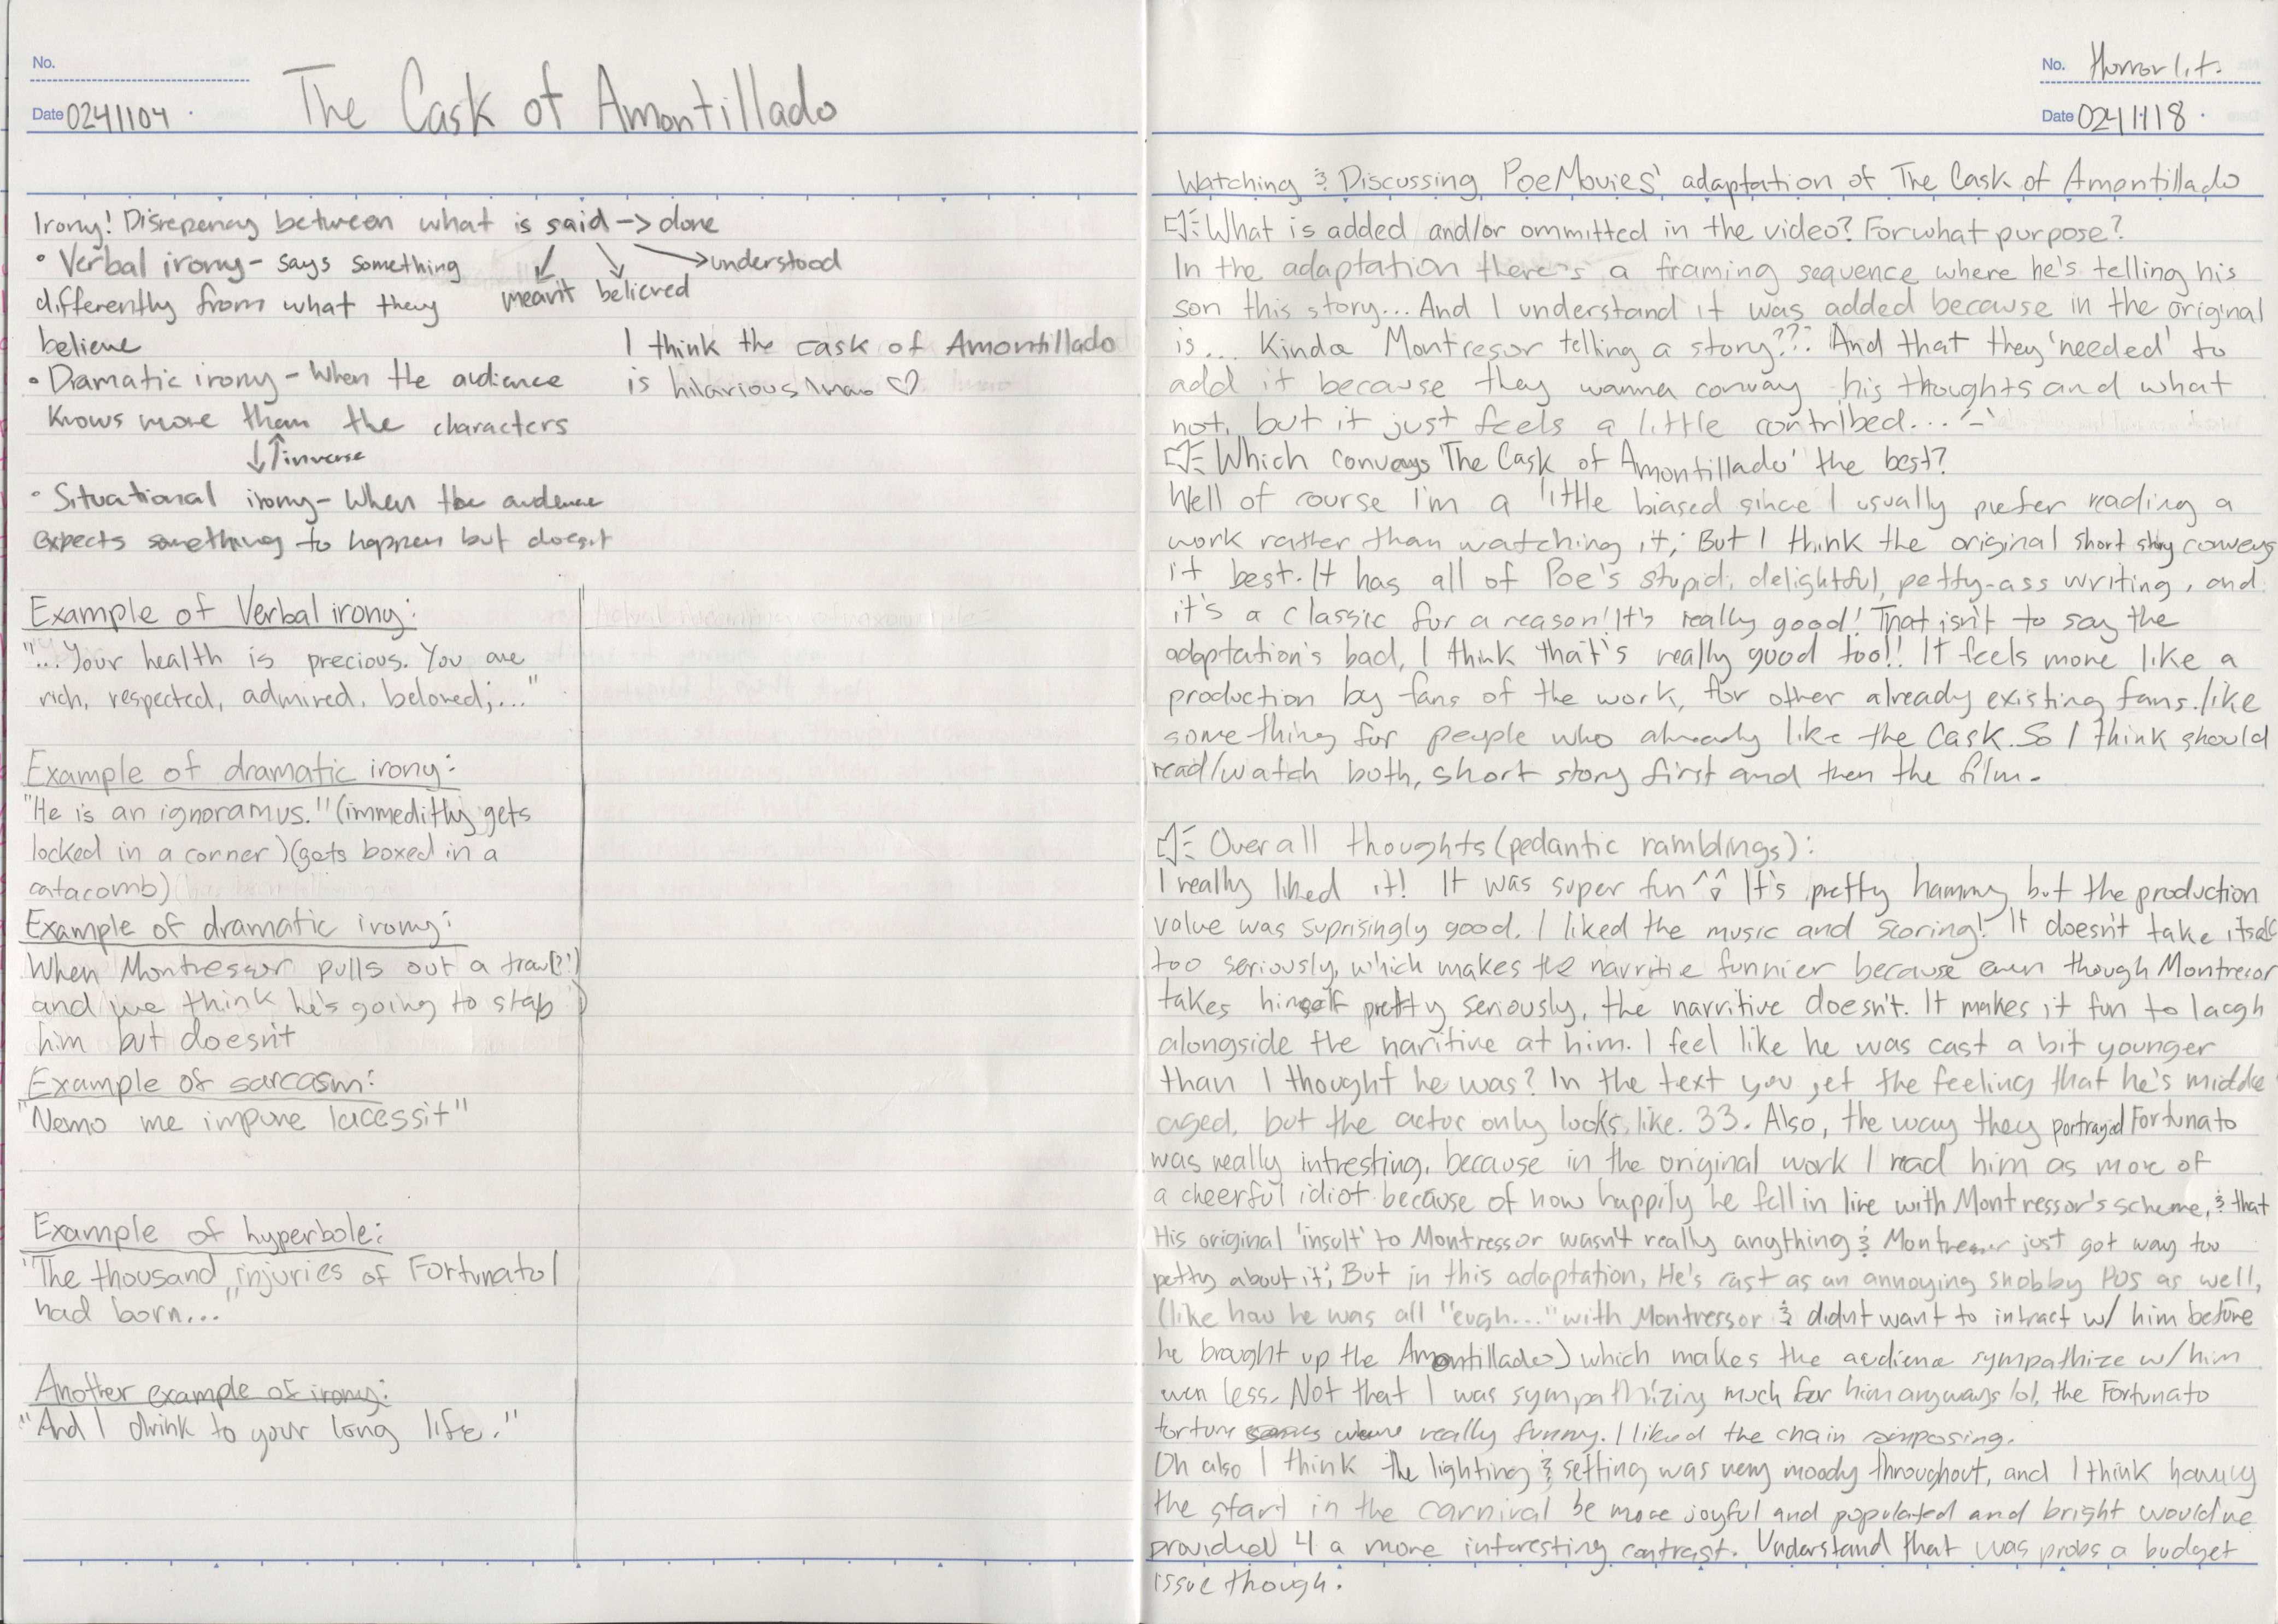 No.
Date 0241104 .
The Cask of Amontillado
Irony! Disrepenay between what is said -> done
meant believed understood
• Verbal irony - says something
differently from what they
believe
• Dramatic irony - When the audience
knows more than the characters
↓↑inverse
• Situational irony - When the audience
expects something to happen but doesnt
I think the cask of Amontillado
is hilarious lmao ♡
Example of Verbal irony:
"...Your health is precious. You are
rich, respected, admired, beloved;..."
Example of dramatic irony:
"He is an ignoramus." (immeditly gets
locked in a corner) (gets boxed in a
catacomb)
Example of dramatic irony:
When Montressor pulls out a trawl(?)
and we think he's going to stab
him but doesn't
Example of sarcasm:
"Nemo me impune lacessit"
Example of hyperbole:
"The thousand injuries of Fortunato I
had born..."
Another example of irony:
"And I drink to your long life."
No. Horror lit.
Date 0241118 .
Watching & Discussing PoeMovies' adaptation of The Cask of Amontillado
What is added and/or ommitted in the video? For what purpose?
In the adaptation there's a framing sequence where he's telling his
son this story... And I understand it was added because in the original
is... Kinda Montresor telling a story??? And that they 'needed' to
add it because they wanna convay his thoughts and what
not, but it just feels a little contribed... '-'
Which conveys 'The Cask of Amontillado' the best?
Well of course I'm a little biased since I usually prefer reading a
work rather than watching it; But I think the original short story conveys
it best. It has all of Poe's stupid, delightful, petty-ass writing, and
it's a classic for a reason! It's really good! That isn't to say the
adaptation's bad, I think that's really good too!! It feels more like a
production by fans of the work, for other already existing fans. like
something for people who already like the Cask. So I think should
read/watch both, short story first and then the film.
Overall thoughts (pedantic ramblings):
I really liked it! It was super fun ^^ It's pretty hammy but the production
value was suprisingly good. I liked the music and scoring! It doesn't take itself
too seriously, which makes the narritie funnier because even though Montresor
takes himself pretty seriously, the narritive doesn't. It makes it fun to laugh
alongside the naritive at him. I feel like he was cast a bit younger
than I thought he was? In the text you get the feeling that he's middle
aged, but the actor only looks like. 33. Also, the way they portrayed Fortunato
was really intresting, because in the original work I read him as more of
a cheerful idiot because of how happily he fell in line with Montressor's scheme, & that
His original 'insult' to Montressor wasn't really anything & Montressor just got way too
petty about it; But in this adaptation, He's cast as an annoying snobby POS as well,
(like how he was all "eugh..." with Montressor & didnt want to intract w/ him before
he brought up the Amontillado) which makes the audience sympathize w/ him
even less. Not that I was sympathizing much for him anyways lol, the Fortunato
torture scenes were really funny. I liked the chain
Oh also I think the lighting & setting was very moody throughout, and I think having
the start in the carnival be more joyful and populated and bright would've
provided 4 a more interesting contrast. Understand that was probs a budget
issue though.